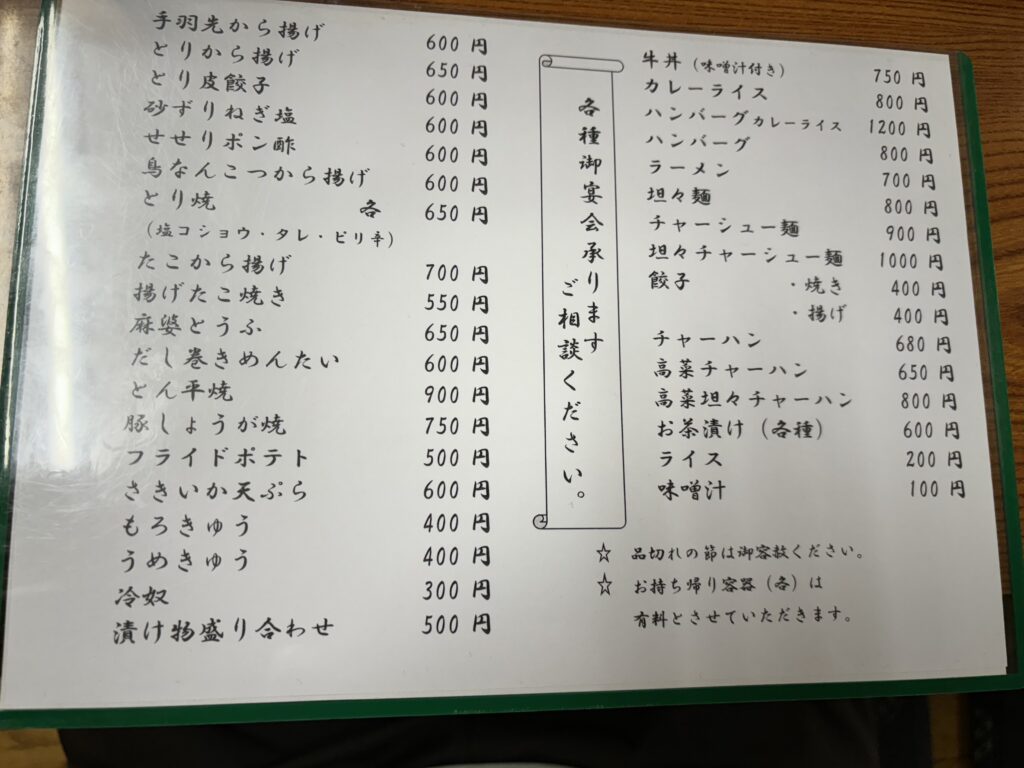 手羽先から揚げ 600 円
とりから揚げ 650 円
とり皮餃子 600 円
砂ずりねぎ塩 600 円
せせりポン酢 600 円
鳥なんこつから揚げ 600 円
とり焼 各 650 円
（塩コショウ・タレ・ピリ辛）
たこから揚げ 700 円
揚げたこ焼き 550 円
麻婆とうふ 650 円
だし巻きめんたい 600 円
とん平焼 900 円
豚しょうが焼 750 円
フライドポテト 500 円
さきいか天ぷら 600 円
もろきゅう 400 円
うめきゅう 400 円
冷奴 300 円
漬け物盛り合わせ 500 円
各種御宴会承ります
ご相談ください。
牛丼（味噌汁付き） 750 円
カレーライス 800 円
ハンバーグカレーライス 1200 円
ハンバーグ 800 円
ラーメン 700 円
坦々麺 800 円
チャーシュー麺 900 円
坦々チャーシュー麺 1000 円
餃子 ・焼き 400 円
・揚げ 400 円
チャーハン 680 円
高菜チャーハン 650 円
高菜坦々チャーハン 800 円
お茶漬け（各種） 600 円
ライス 200 円
味噌汁 100 円
☆ 品切れの節は御容赦ください。
☆ お持ち帰り容器（各）は
有料とさせていただきます。